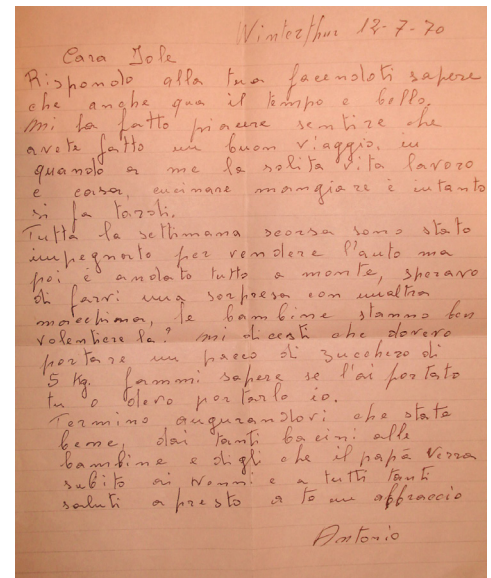 Winterthur 12-7-70
Cara Iole
Rispondo alla tua facendoti sapere
che anghe qua il tempo e bello,
mi fa fatto piacere sentire che
avete fatto un buon viaggio, in
quando a me la solita vita lavoro
e casa, cucinare mangiare è intanto
si fa tardi.
Tutta la settimana scorsa sono stato
impegnato per vendere l'auto ma
poi è andato tutto a monte, speravo
di farvi una sorpresa con unaltra
macchina, le bambine stanno ben
volentiere la? mi dicesti che dovevo
portare un pacco di zucchero di
5 Kg. fammi sapere se l'ai portato
tu o devo portarlo io.
Termino augurandovi che state
bene, dai tanti bacini alle
bambine e digli che il papà verra
subito ai nonni e a tutti tanti
saluti a presto a te un abbraccio
Antonio